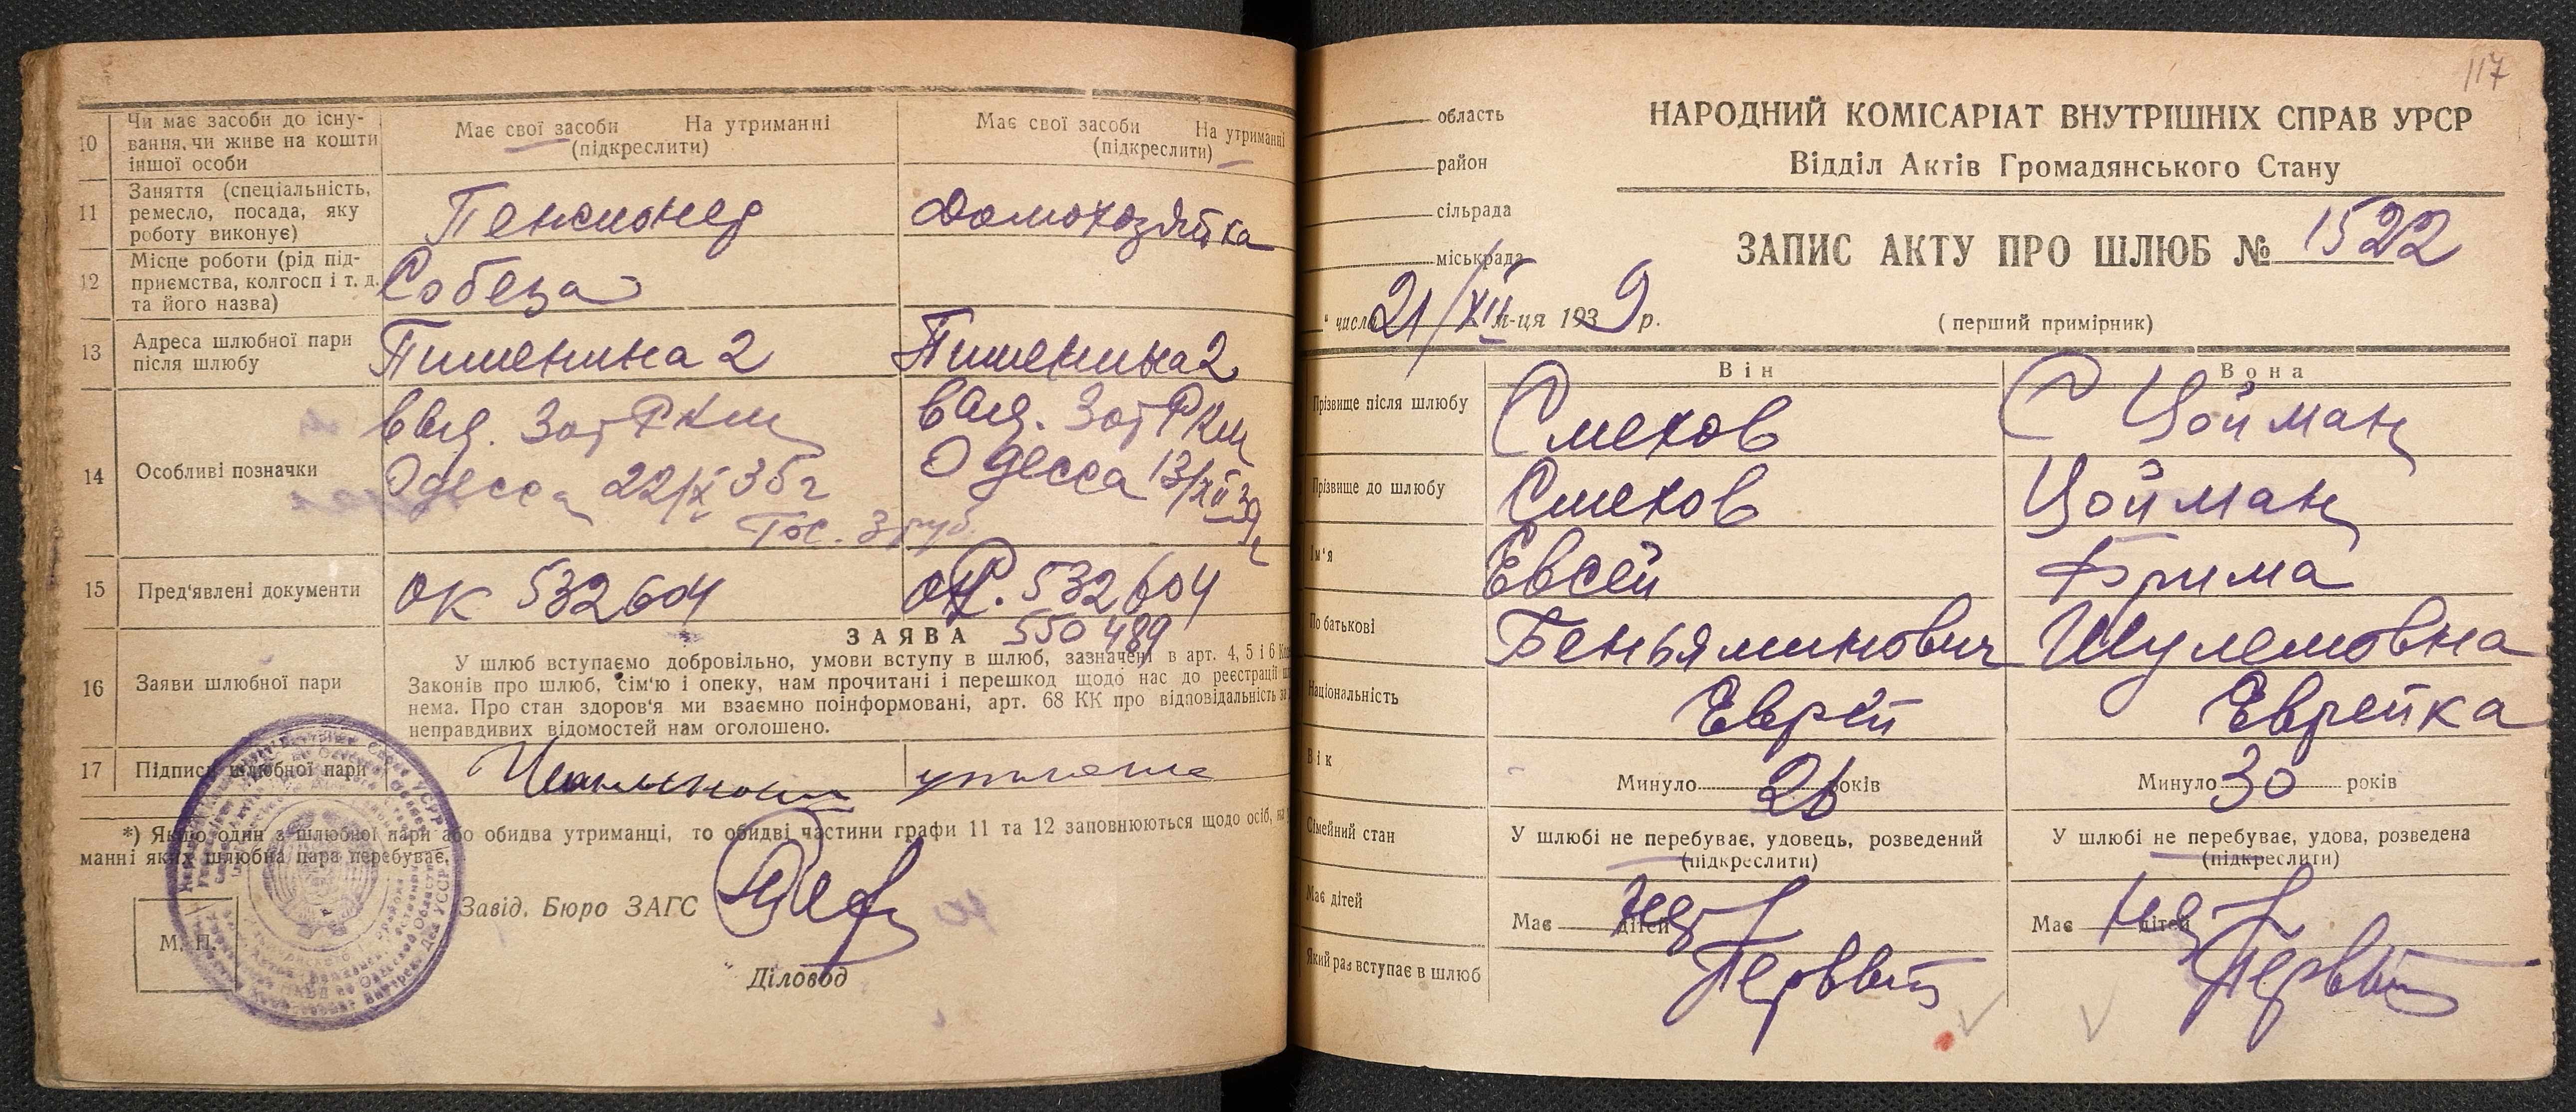 10 Чи має засоби до існу-
вання, чи живе на кошти
іншої особи
Має свої засоби На утриманні
(підкреслити)
Має свої засоби На утриманні
(підкреслити)
11 Заняття (спеціальність,
ремесло, посада, яку
роботу виконує)
Пенсионер
Домохозяйка
12 Місце роботи (рід під-
приємства, колгосп і т. д.
та його назва)
Собеза
13 Адреса шлюбної пари
після шлюбу
Пишенина 2
Пишенина 2
14 Особливі позначки
выд. Заг РКМ
Одесса 22/X 35 г
Гос. 3 руб.
выд. Заг РКМ
Одесса 13/XII 39 г
15 Пред'явлені документи
ОК 532604
ОК. 532604
550489
16 Заяви шлюбної пари
ЗАЯВА
У шлюб вступаємо добровільно, умови вступу в шлюб, зазначені в арт. 4, 5 і 6
Законів про шлюб, сім'ю і опеку, нам прочитані і перешкод щодо нас до реєстрації
нема. Про стан здоров'я ми взаємно поінформовані, арт. 68 КК про відповідальність за
неправдивих відомостей нам оголошено.
17 Підписи шлюбної пари
*) Якщо один з шлюбної пари або обидва утриманці, то обидві частини графи 11 та 12 заповнюються щодо осіб, на
манні яких шлюбна пара перебуває.
Завід. Бюро ЗАГС
М. П.
Діловод
117
область
район
сільрада
міськрада
" числа 21/XII м-ця 1939 р.
НАРОДНИЙ КОМІСАРІАТ ВНУТРІШНІХ СПРАВ УРСР
Відділ Актів Громадянського Стану
ЗАПИС АКТУ ПРО ШЛЮБ № 1522
(перший примірник)
Він Вона
Прізвище після шлюбу Смехов Цойман
Прізвище до шлюбу Смехов Цойман
Ім'я Евсей Брима
По батькові Беньяминович Шулемовна
Національність Еврей Еврейка
Вік Минуло 26 років Минуло 30 років
Сімейний стан
У шлюбі не перебуває, удовець, розведений
(підкреслити)
У шлюбі не перебуває, удова, розведена
(підкреслити)
Має дітей Має нет дітей Має нет дітей
Який раз вступає в шлюб Первый Первый